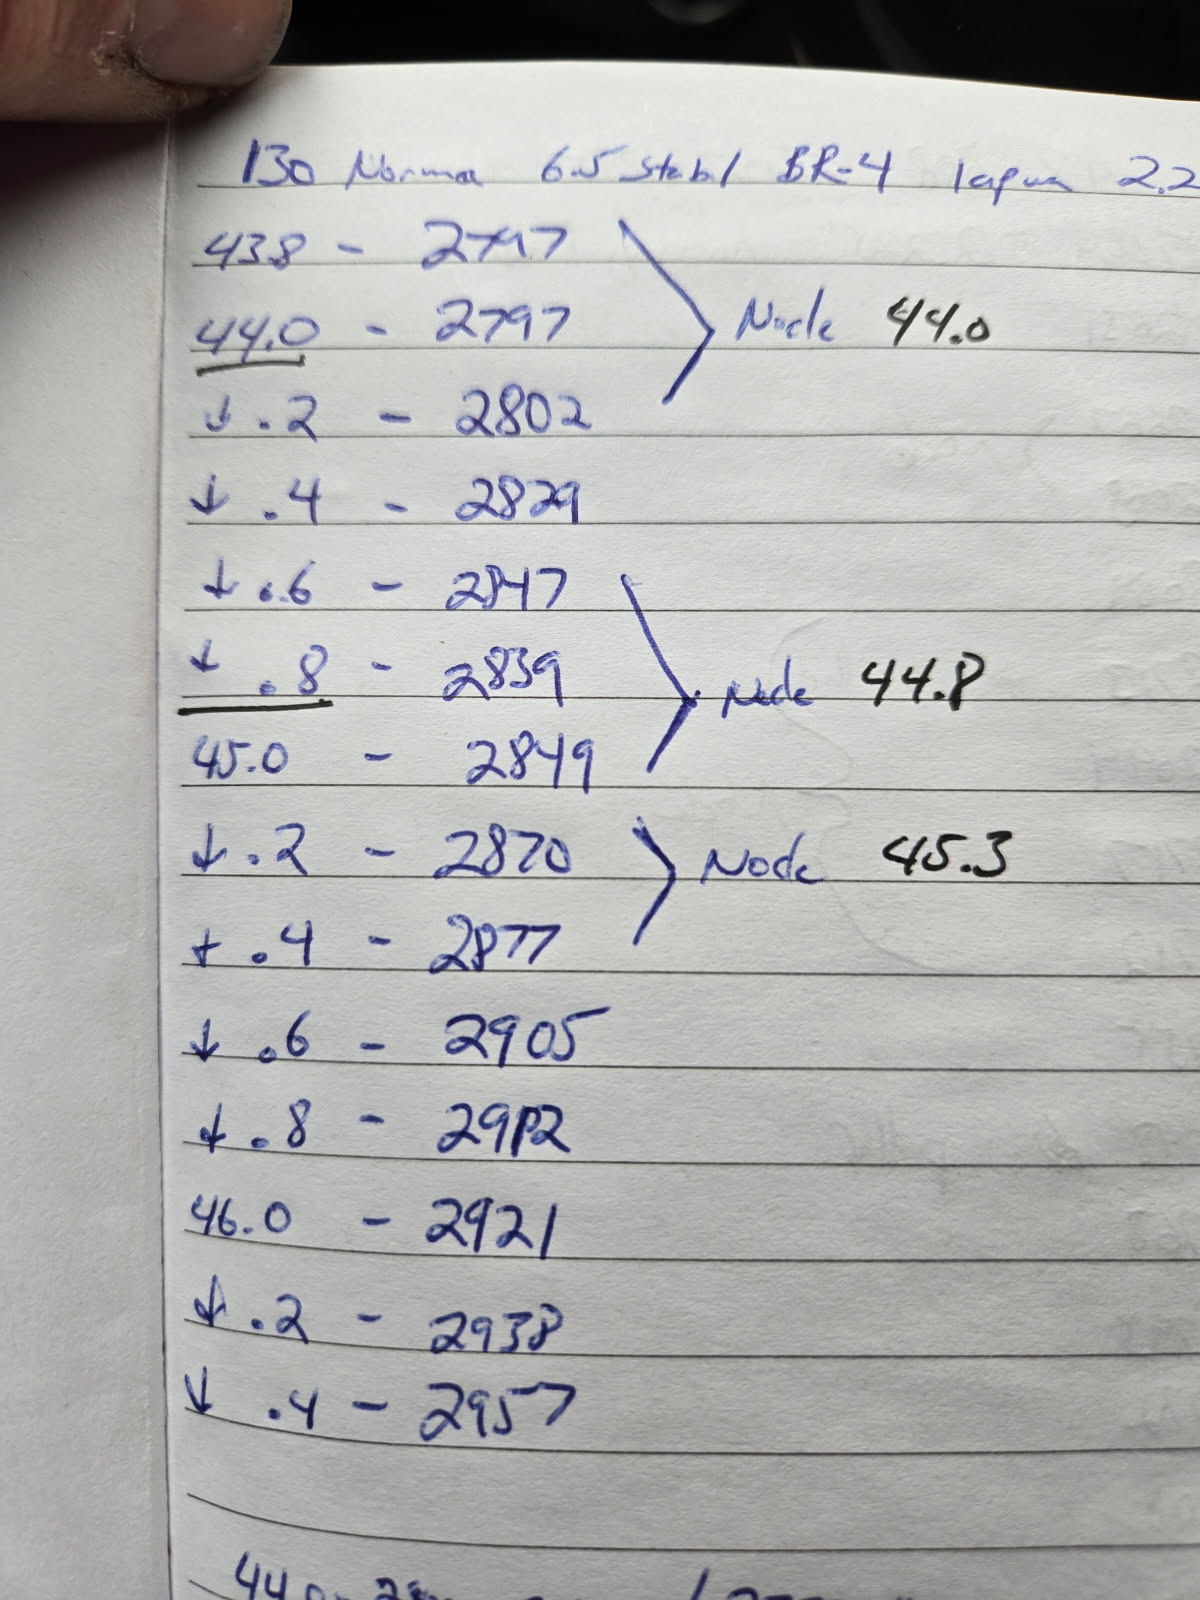 130 Norma 6.5 Stabl BR-4 lapua 2.2
43.8 - 2797
44.0 - 2797 Node 44.0
↓ .2 - 2802
↓ .4 - 2829
↓ .6 - 2847
↓ .8 - 2839 Node 44.8
45.0 - 2849
↓ .2 - 2870 Node 45.3
↓ .4 - 2877
↓ .6 - 2905
↓ .8 - 2912
46.0 - 2921
↓ .2 - 2938
↓ .4 - 2957